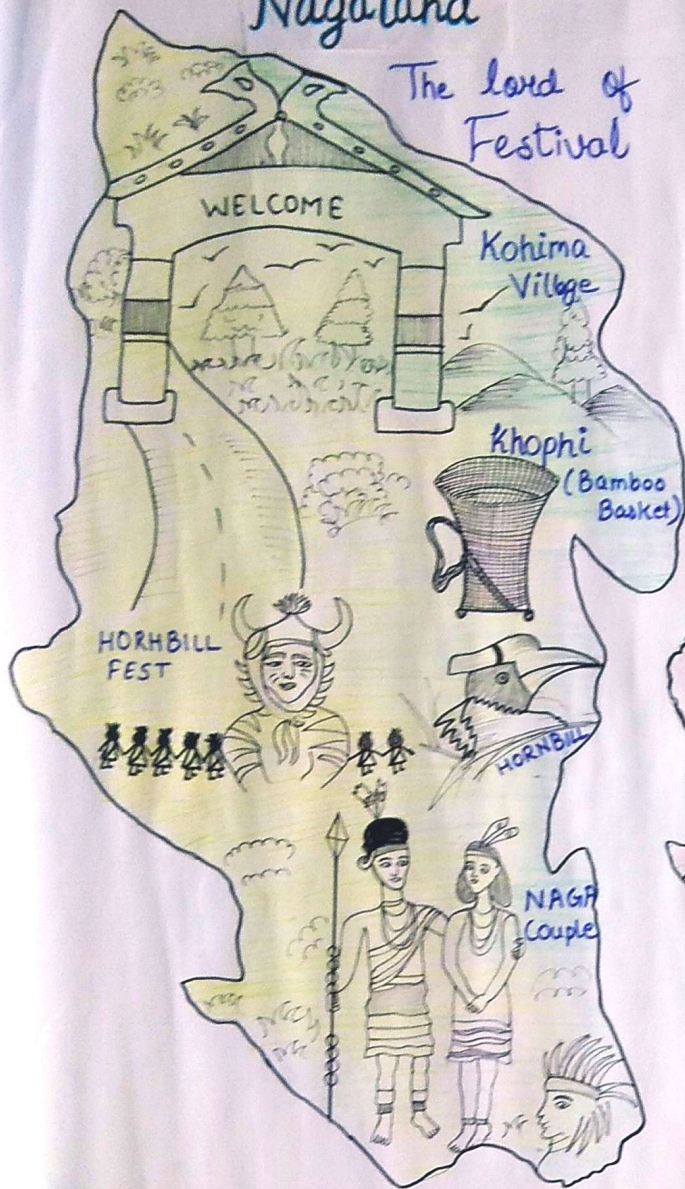 Nagaland
The lord of
Festival
WELCOME
Kohima
Village
Khophi
(Bamboo
Basket)
HORHBILL
FEST
HORNBILL
NAGA
Couple